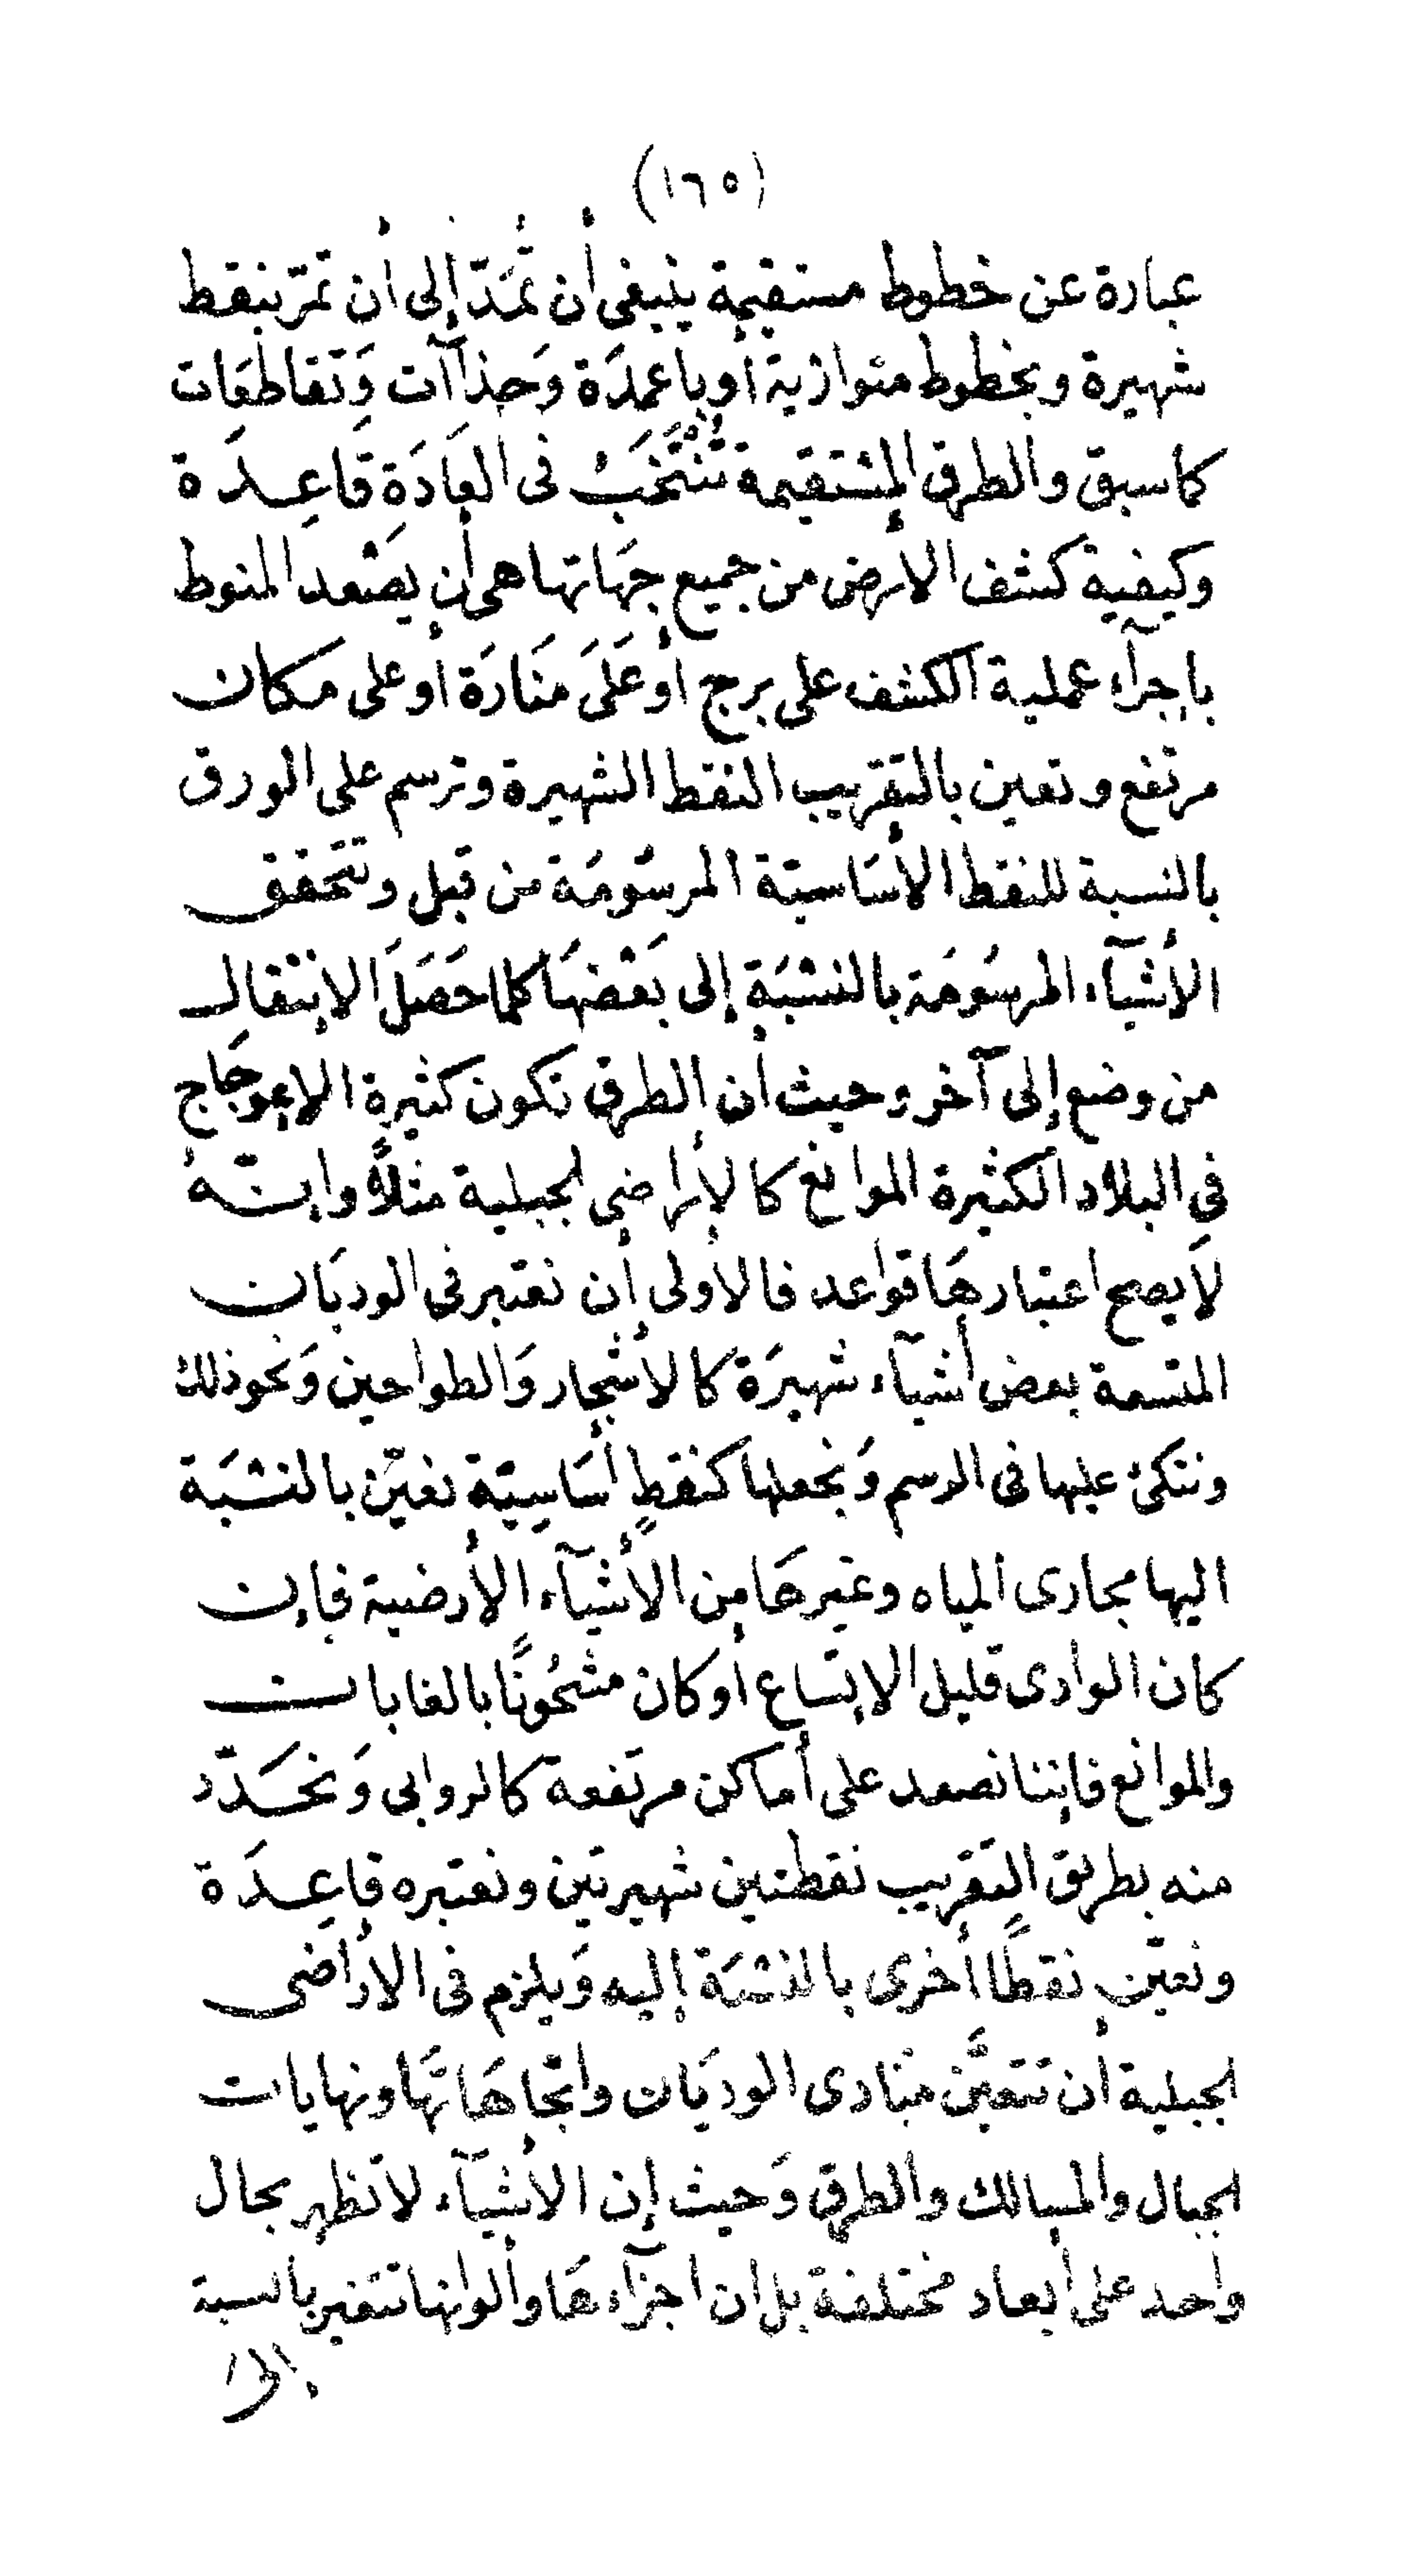 (١٦٥)
عبارة عن خطوط مستقيمة ينبغى أن تُمَدّ إلى أن تمرّ بنقط
شهيرة وبخطوط متوازية أو باعمدَة وَحِذاآت وَتَقاطعَات
كاسبق والطرق المسْتقيمة تُنْتَخَبُ فى العَادَة قاعِدَة
وكيفية كشف الأرض من جميع جِهَاتها هى أن يَصْعد المنوط
بإجرآء عملية الكشف على برج أو عَلَى مَنَارَة أو على مكان
مرتفع وتعين بالتقريب النقط الشهيرة وترسم على الورق
بالنسبة للنقط الأسَاسيّة المرسُومَة من قبل وتتحقق
الأشيآء المرسُومَة بالنسْبَة إلى بَعْضهَا كلما حَصَلَ الانتقال
من وضع إلى آخر وحيث أن الطرق تكون كثيرة الاعوجَاج
فى البلاد الكثيرة الموانع كالأراضى الجبلية مثلاً وإنّهُ
لاَ يصح اعتبارهَا قواعد فالأولى أن نعتبر فى الوديَان
المتسعة بعض أشيآء شهيرَة كالأشجار وَالطواحين وَنحو ذلك
ونتكئ عليها فى الرسم وَنجعلها كنقطٍ أسَاسِيّة نعيّن بالنسْبَة
اليها مجارى المياه وغيرهَا من الأشيآء الأرضية فإن
كان الوادى قليل الإتساع أو كان مشحُونًا بالغابات
والموانع فإننا نصعد على أماكن مرتفعة كالروابى وَنحَدّد
منه بطريق التقريب نقطتين شهيرتين ونعتبره قاعِدَة
ونعيّن نقطًا أخرى بالنسْبَة إليه وَيلزم فى الأراضى
الجبلية أن تتعيَّن مَبَادى الوديَان واتجاهَاتهَا ونهايات
الجبال والمسالك والطرق وَحيث إن الأشيآء لا تظهر بحال
واحد على أبعاد مختلفة بل ان اجزآءهَا وألوانها تتغير بالنسبة
إلى